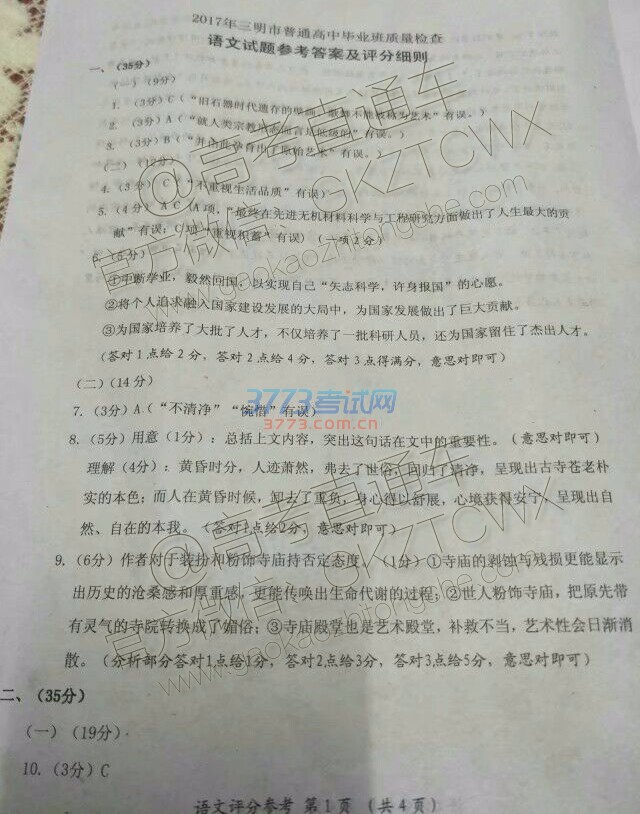 2017年三明市普通高中毕业班质量检查
语文试题参考答案及评分细则
一、（35分）
（一）（9分）
1. （3分）C（“旧石器时代遗存的壁画、歌舞不能被称为艺术”有误。）
2. （3分）A（“就人类宗教形态而言是低级的”有误。）
3. （3分）B（“并由此孕育出了原始艺术”有误。）
（二）（12分）
4.（3分） C （“不重视生活品质”有误）
5.（4分） A C（A项，“最终在先进无机材料科学与工程研究方面做出了人生最大的贡
献”有误；C项“重视积蓄”有误）（一项2分）
6. （5分）
①中断学业，毅然回国，以实现自己“矢志科学，许身报国”的心愿。
②将个人追求融入国家建设发展的大局中，为国家发展做出了巨大贡献。
③为国家培养了大批了人才，不仅培养了一批科研人员，还为国家留住了杰出人才。
（答对1点给2分，答对2点给4分，答对3点得满分，意思对即可）
（二）（14分）
7. （3分）A（“不清净”“惋惜”有误）
8. （5分）用意（1分）：总括上文内容，突出这句话在文中的重要性。（意思对即可）
理解（4分）：黄昏时分，人迹萧然，弗去了世俗，回归了清净，呈现出古寺苍老朴
实的本色；而人在黄昏时候，卸去了重负，身心得以舒展，心境获得安宁，呈现出自
然、自在的本我。（答对1点给2分，意思对即可）
9. （6分）作者对于装扮和粉饰寺庙持否定态度。（1分）①寺庙的剥蚀与残损更能显示
出历史的沧桑感和厚重感，更能传唤出生命代谢的过程；②世人粉饰寺庙，把原先带
有灵气的寺院转换成了媚俗；③寺庙殿堂也是艺术殿堂，补救不当，艺术性会日渐消
散。（分析部分答对1点给1分，答对2点给3分，答对3点给5分，意思对即可）
二、（35分）
（一）（19分）
10.（3分）C
语文评分参考 第1页 （共4页）
@高考直通车
官方微信：GKZTCWX
www.gaokaozhitongche.com
3773考试网
3773.com.cn
@高考直通车
官方微信：GKZTCWX
www.gaokaozhitongche.com